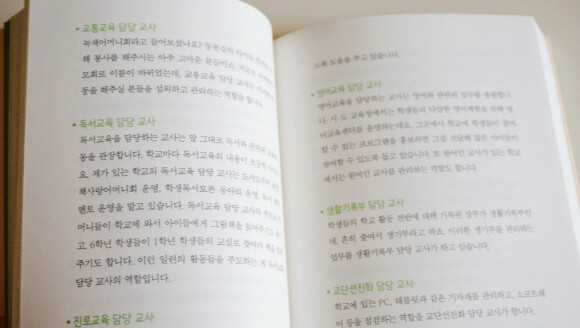 • 교통교육 담당 교사
녹색어머니회라고 들어보셨나요? 등굣길의 아이들
해 봉사를 해주시는 아주 고마운 분들이죠. 지금은
모회로 이름이 바뀌었는데, 교통교육 담당 교사는
동을 해주실 분들을 섭외하고 관리하는 역할을 합니다.
• 독서교육 담당 교사
독서교육을 담당하는 교사는 말 그대로 독서와 관련된 교육
동을 관장합니다. 학교마다 독서교육의 내용이 조금씩
요, 제가 있는 학교의 독서교육 담당 교사는 도서도우미
책사랑어머니회 운영, 학생독서토론 동아리 운영, 독서
멘토 운영을 맡고 있습니다. 독서교육 담당 교사의
머니들이 학교에 와서 아이들에게 그림책을 읽어주기도
고, 6학년 학생들이 1학년 학생들의 교실로 찾아가 책을
주기도 합니다. 이런 일련의 활동들을 주도하는 게 독서교육
담당 교사의 역할입니다.
• 진로교육 담당 교사
도록 도움을 주고 있습니다.
• 영어교육 담당 교사
영어교육을 담당하는 교사는 영어와 관련된 업무를 총괄합니
다. 시·도 교육청에서는 학생들의 다양한 영어체험을 위해 영
어교육센터를 운영하는데요. 그곳에서 학교에 학생들이 참여
할 수 있는 프로그램을 홍보하면 그걸 전달해 많은 아이들이
참여할 수 있도록 돕고 있습니다. 또 원어민 교사가 있는 학교
에서는 원어민 교사를 관리하는 역할도 합니다.
• 생활기록부 담당 교사
학생들의 학교 활동 전반에 대해 기록된 장부가 생활기록부인
데, 흔히 줄여서 생기부라고 하죠. 이러한 생기부를 관리하는
업무를 생활기록부 담당 교사가 하고 있습니다.
• 교단선진화 담당 교사
학교에 있는 PC, 태블릿과 같은 기자재를 관리하고, 소프트웨
어 등을 점검하는 역할을 교단선진화 담당 교사가 합니다.